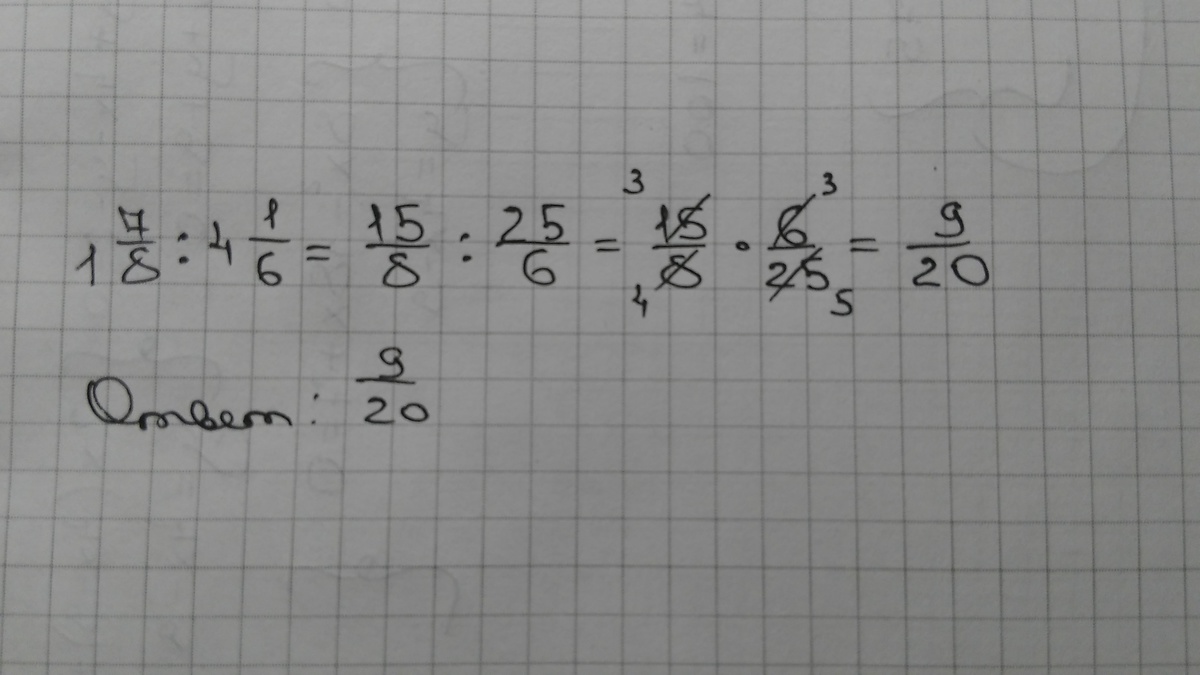 1 7/8 : 4 1/6 = 15/8 : 25/6 = 3 15/8 4 · 6 3/25 5 = 9/20
Ответ: 9/20